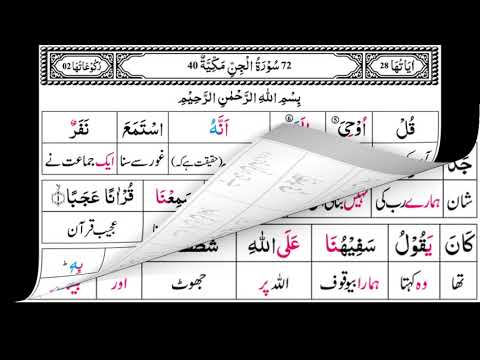 اٰيَاتُهَا 28
72 سُوْرَةُ الْجِنِّ مَكِّيَّةٌ 40
رُكُوْعَاتُهَا 02
بِسْمِ اللهِ الرَّحْمٰنِ الرَّحِيْمِ
قُلْ اُوْحِيَ اَنَّهُ اسْتَمَعَ نَفَرٌ
(حقیقت ہے کہ) غور سے سنا ایک جماعت نے
سَمِعْنَا قُرْاٰنًا عَجَبًا ۱
شان ہمارے رب کی نہیں عجیب قرآن
كَانَ يَقُوْلُ سَفِيْهُنَا عَلَى اللهِ بِهٖ
تھا وہ کہتا ہمارا بیوقوف اللہ پر جھوٹ اور